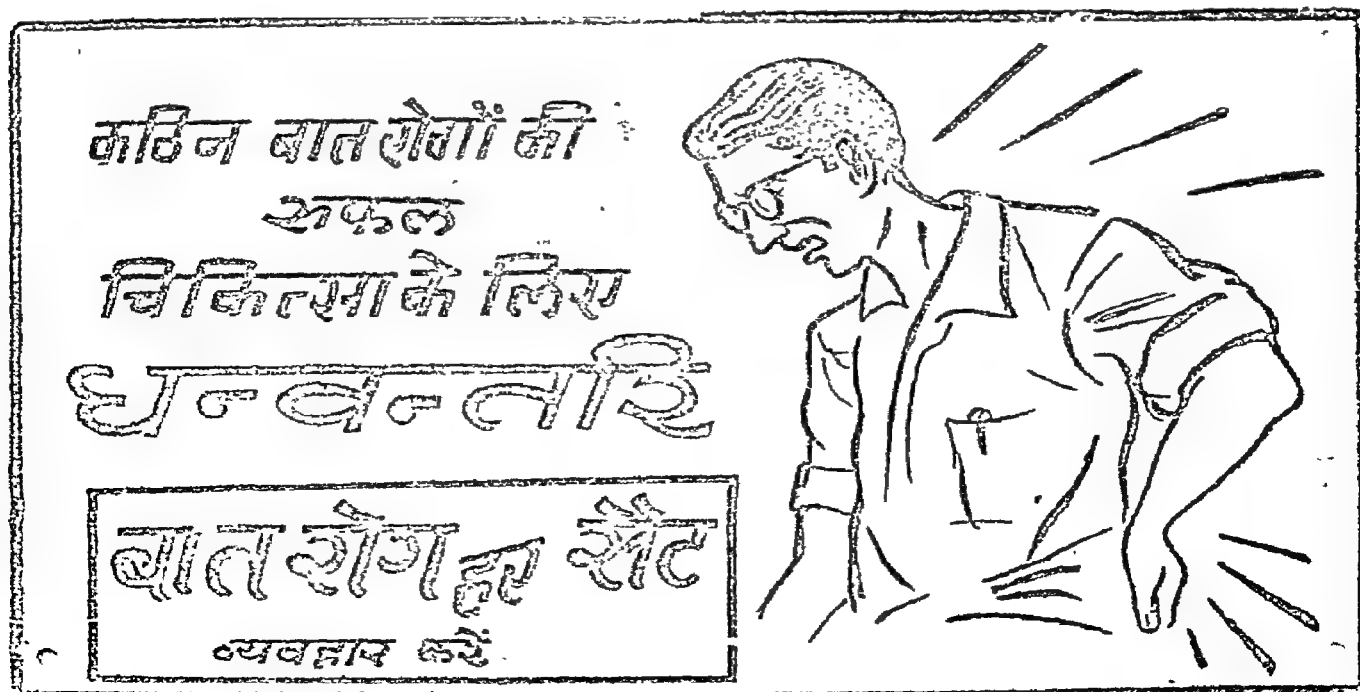 कठिन बात रोगों की
सफल
चिकित्सा के लिए
धन्वन्तरि
बात रोग हर सैट
व्यवहार करें